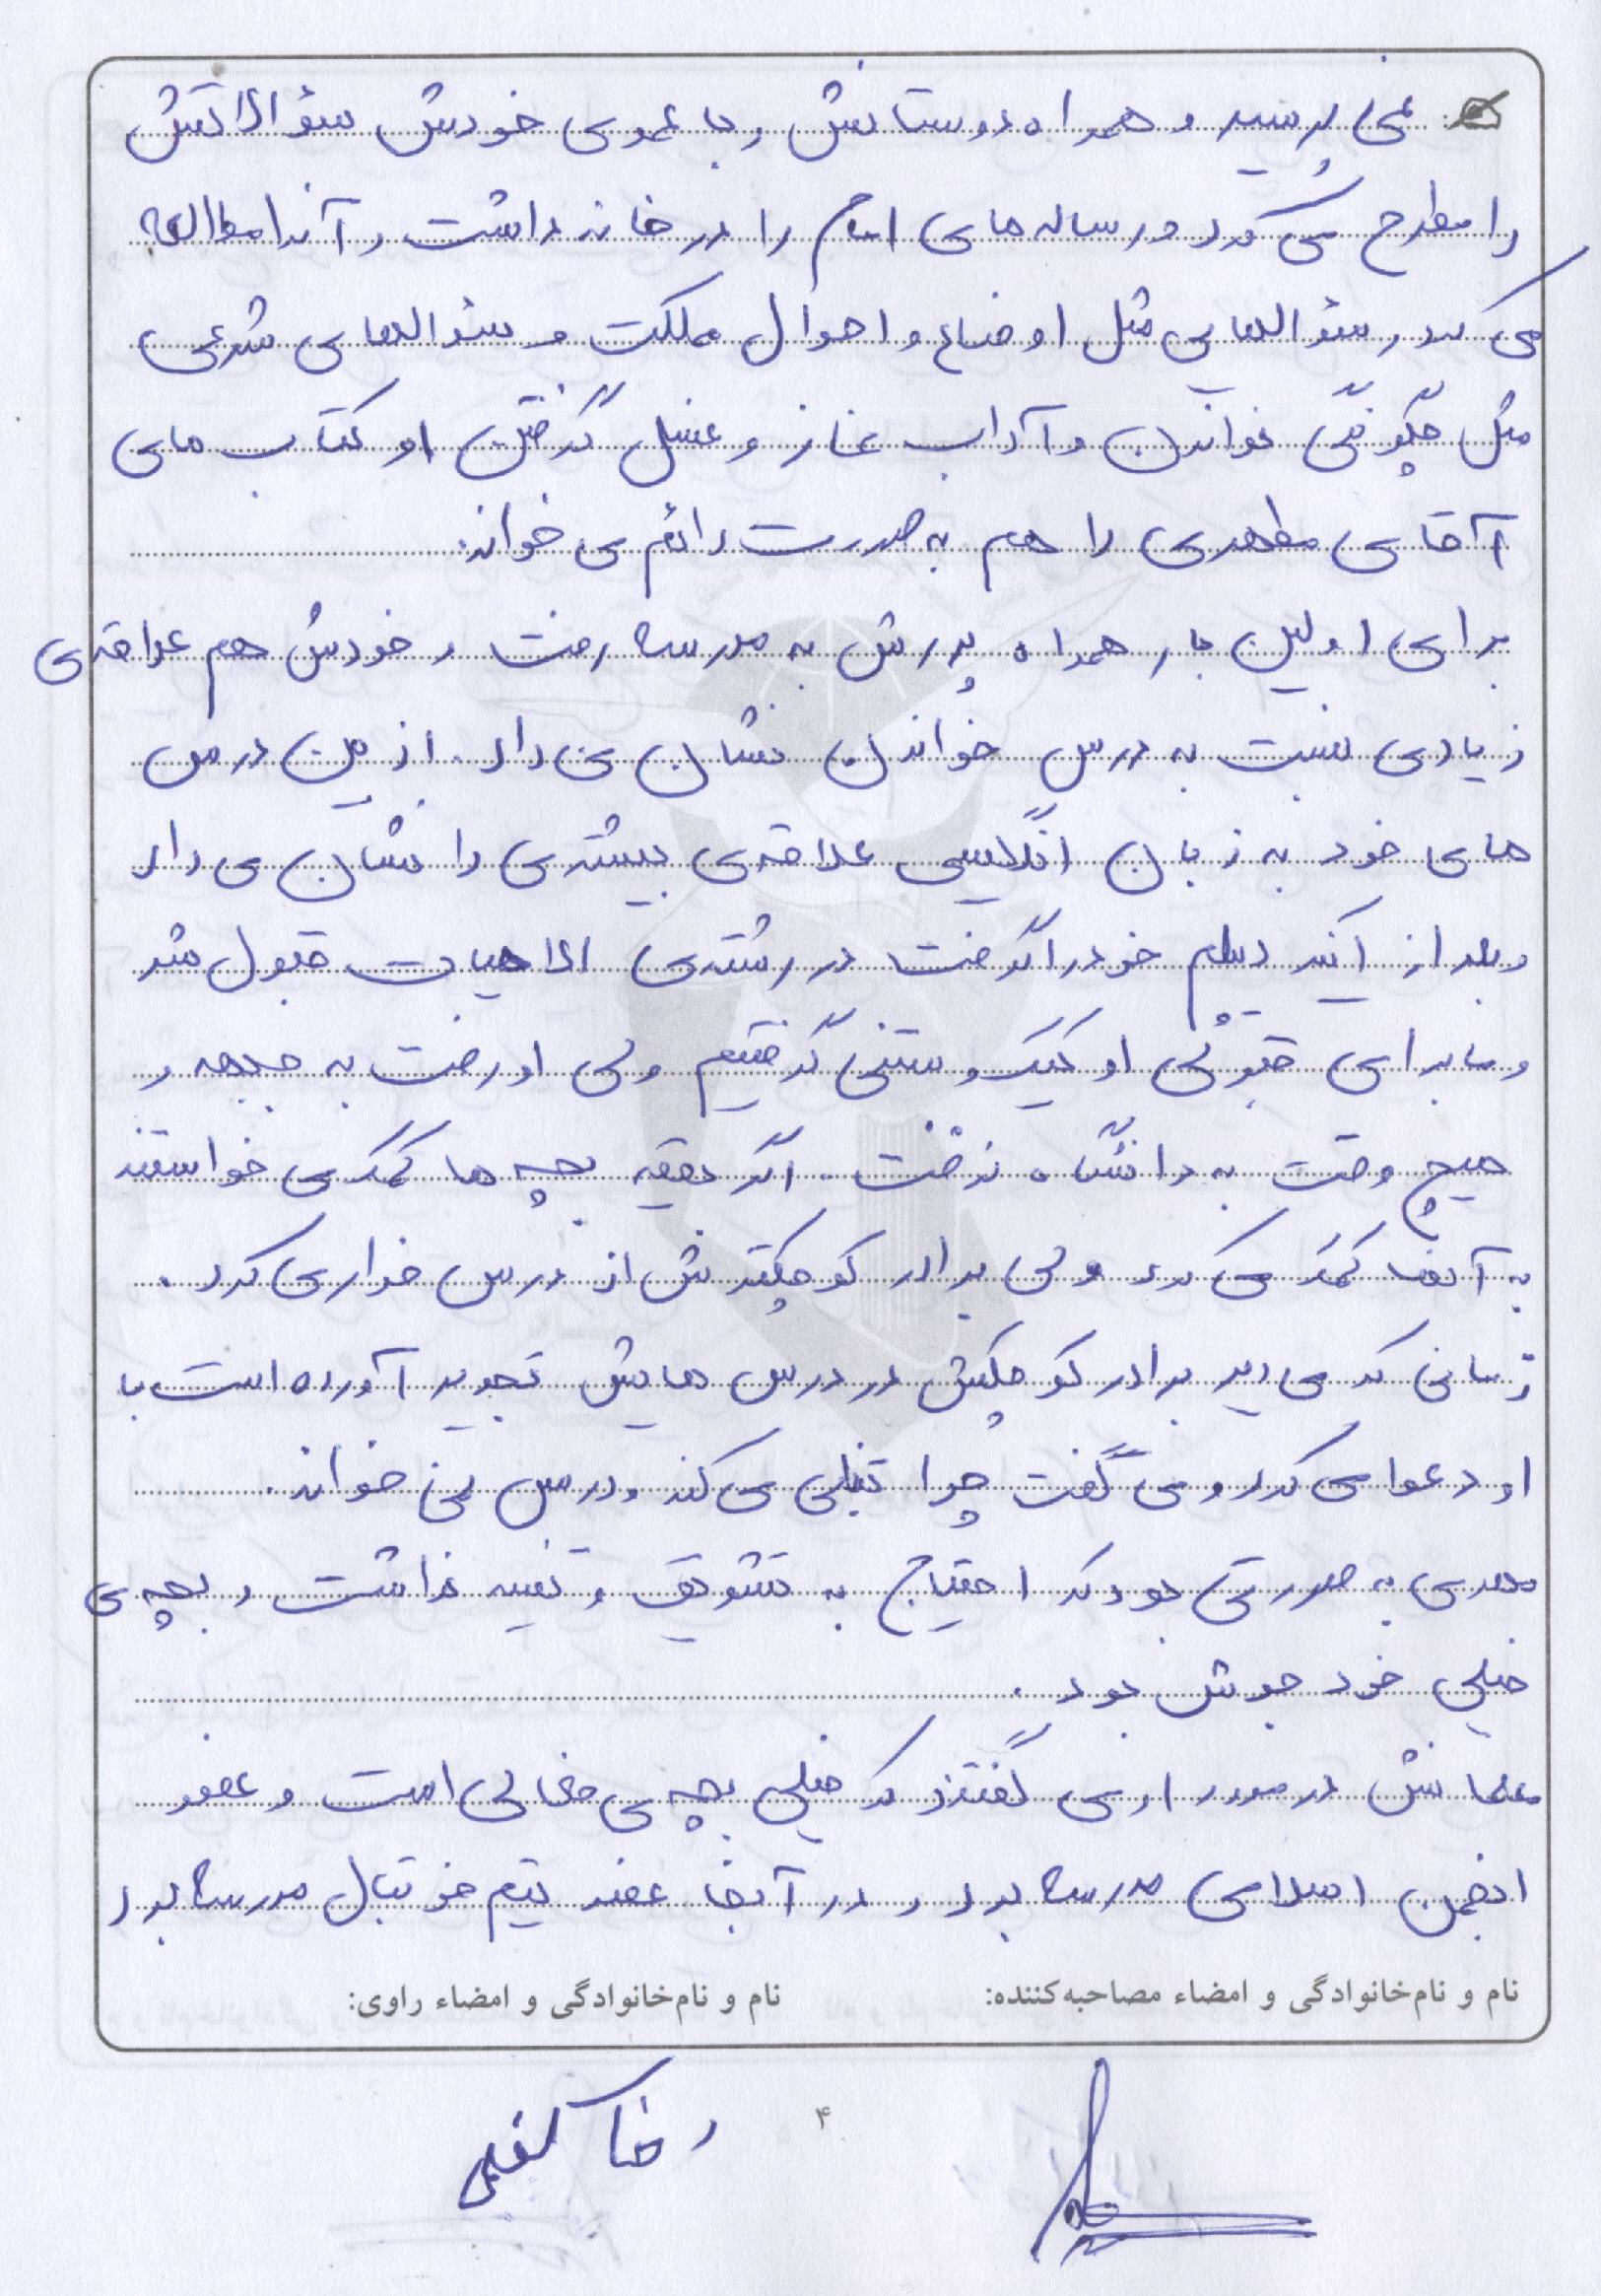 نمی پرسید و همراه دوستانش و با عموی خودش سئوالاتش
را مطرح می کرد و رساله های امام را در خانه داشت و آنرا مطالعه
می کرد و سئوالهایی مثل اوضاع و احوال مملکت و سئوالهایی شرعی
مثل چگونگی خواندن و آداب نماز و غسل گرفتن او کتاب های
آقای مطهری را هم به صورت دائم می خواند.
برای اولین بار همراه پدرش به مدرسه رفت و خودش هم علاقه ی
زیادی نسبت به درس خواندن نشان می داد. از بین درس
های خود به زبان انگلیسی علاقه ی بیشتری را نشان می داد
و بعد از اینکه دیپلم خود را گرفت در رشته ی الاهیات قبول شد
و ما برای قبولی او کیک و بستنی گرفتیم ولی او رفت به جبهه و
هیچ وقت به دانشگاه نرفت. اگر بقیه بچه ها کمک می خواستند
به آنها کمک می کرد ولی برادر کوچکترش از درس فرار می کرد.
زمانی که می دید برادر کوچکش در درس هایش تجدید آورده است با
او دعوا می کرد و می گفت چرا تنبلی می کند و درس نمی خواند.
مهدی به صورتی بود که احتیاج به تشویق و تنبیه نداشت و بچه ی
خیلی خود جوش بود.
معلمانش در مورد او می گفتند که خیلی بچه ی فعالی است و عضو
انجمن اسلامی مدرسه بود و در آنجا عضو تیم فوتبال مدرسه بود
نام و نام‌خانوادگی و امضاء مصاحبه‌کننده: نام و نام‌خانوادگی و امضاء راوی:
۴
رضا